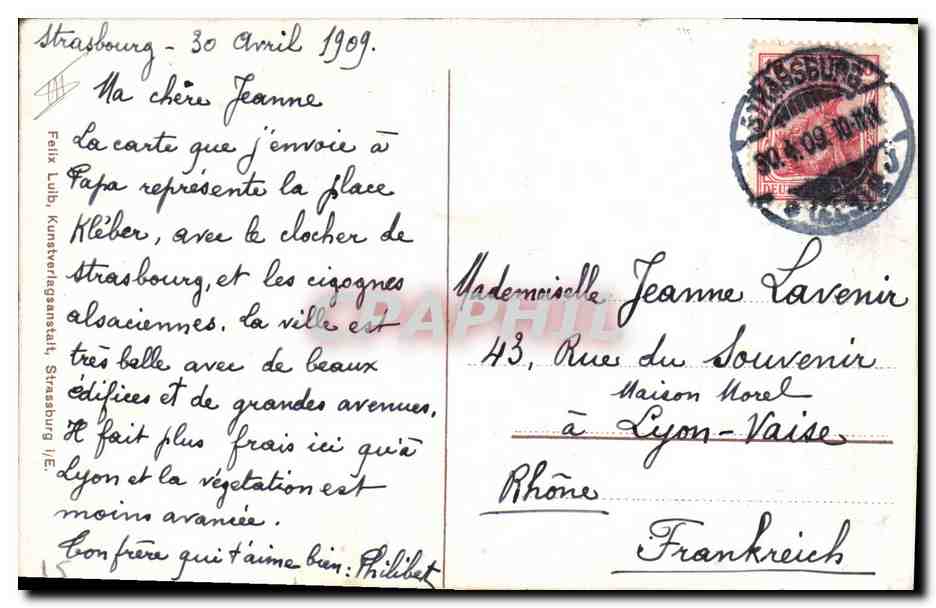 Strasbourg - 30 Avril 1909.
Ma chère Jeanne
La carte que j'envoie à
Papa représente la place
Kléber, avec le clocher de
Strasbourg, et les cigognes
alsaciennes. La ville est
très belle avec de beaux
édifices et de grandes avenues.
Il fait plus frais ici qu'à
Lyon et la végétation est
moins avancée.
Ton frère qui t'aime bien : Philibert
Felix Luib, Kunstverlagsanstalt, Strassburg i/E.
STRASSBURG
30.4.09. 10-11V.
Mademoiselle Jeanne Lavenir
43, Rue du Souvenir
Maison Morel
à Lyon-Vaise
Rhône
Frankreich
CPAPHIL
15